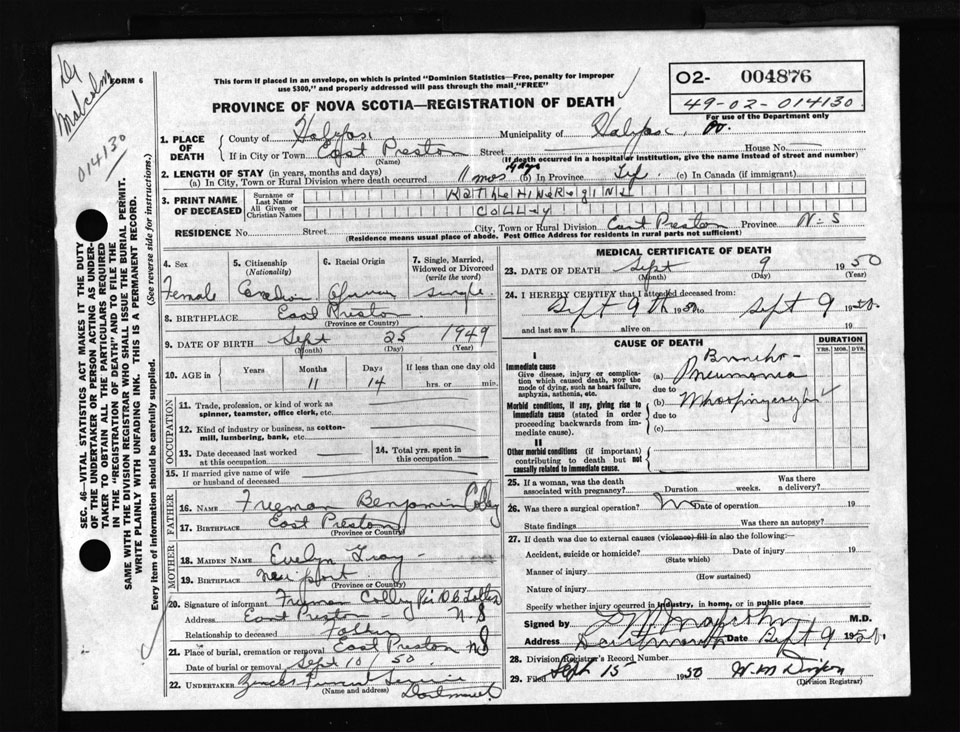 Dr
Malcolm
014130
FORM 6
This form if placed in an envelope, on which is printed "Dominion Statistics—Free, penalty for improper
use $300," and properly addressed will pass through the mail "FREE"
O2- 004876
49-02-014130
For use of the Department only
PROVINCE OF NOVA SCOTIA—REGISTRATION OF DEATH
1. PLACE OF DEATH
County of Halifax Municipality of Halifax Co.
If in City or Town East Preston (Name) Street House No.
(If death occurred in a hospital or institution, give the name instead of street and number)
2. LENGTH OF STAY (in years, months and days)
(a) In City, Town or Rural Division where death occurred 11 mos 14 days (b) In Province Life (c) In Canada (if immigrant)
3. PRINT NAME OF DECEASED
Surname or Last Name KatheHineRegine
All Given or Christian Names Colley
RESIDENCE No. Street City, Town or Rural Division East Preston Province N-S
(Residence means usual place of abode. Post Office Address for residents in rural parts not sufficient)
4. Sex Female
5. Citizenship (Nationality) Canadian
6. Racial Origin
7. Single, Married, Widowed or Divorced (write the word) Single
8. BIRTHPLACE East Preston
(Province or Country)
9. DATE OF BIRTH Sept 25 1949
(Month) (Day) (Year)
10. AGE in Years Months 11 Days 14 If less than one day old hrs. or min.
OCCUPATION
11. Trade, profession, or kind of work as spinner, teamster, office clerk, etc.
12. Kind of industry or business, as cotton-mill, lumbering, bank, etc.
13. Date deceased last worked at this occupation
14. Total yrs. spent in this occupation
15. If married give name of wife or husband of deceased
FATHER
16. NAME Freeman Benjamin Colley
17. BIRTHPLACE East Preston
(Province or Country)
MOTHER
18. MAIDEN NAME Evelyn Gray
19. BIRTHPLACE Newport
(Province or Country)
20. Signature of informant Freeman Colley Per
Address East Preston N.S
Relationship to deceased Father
21. Place of burial, cremation or removal East Preston NS
Date of burial or removal Sept 10/50.
22. UNDERTAKER Zincks Funeral Service
(Name and address) Dartmouth
MEDICAL CERTIFICATE OF DEATH
23. DATE OF DEATH Sept 9 1950
(Month) (Day) (Year)
24. I HEREBY CERTIFY that I attended deceased from:
Sept 9th 1950 to Sept 9 1950.
and last saw h alive on 19
CAUSE OF DEATH
DURATION
YRS. MOS. DYS.
I
Immediate cause
Give disease, injury or complication which caused death, NOT the mode of dying, such as heart failure, asphyxia, asthenia, etc.
(a) Broncho-Pneumonia
due to
Morbid conditions, if any, giving rise to immediate cause (stated in order proceeding backwards from immediate cause).
(b) Whooping cough
due to
(c)
II
Other morbid conditions (if important) contributing to death but not causally related to immediate cause.
25. If a woman, was the death associated with pregnancy? Duration weeks. Was there a delivery?
26. Was there a surgical operation? No Date of operation 19
State findings Was there an autopsy?
27. If death was due to external causes (violence) fill in also the following:—
Accident, suicide or homicide? Date of injury 19
(State which)
Manner of injury
(How sustained)
Nature of injury
Specify whether injury occurred in industry, in home, or in public place
Signed by M.D.
Address Dartmouth Date Sept 9 1950.
28. Division Registrar's Record Number
29. Filed Sept 15 1950
(Division Registrar)
SEC. 46—VITAL STATISTICS ACT MAKES IT THE DUTY
OF THE UNDERTAKER OR PERSON ACTING AS UNDER-
TAKER TO OBTAIN ALL THE PARTICULARS REQUIRED
IN THE "REGISTRATION OF DEATH" AND TO FILE THE
SAME WITH THE DIVISION REGISTRAR WHO SHALL ISSUE THE BURIAL PERMIT.
WRITE PLAINLY WITH UNFADING INK. THIS IS A PERMANENT RECORD.
Every item of information should be carefully supplied. (See reverse side for instructions.)